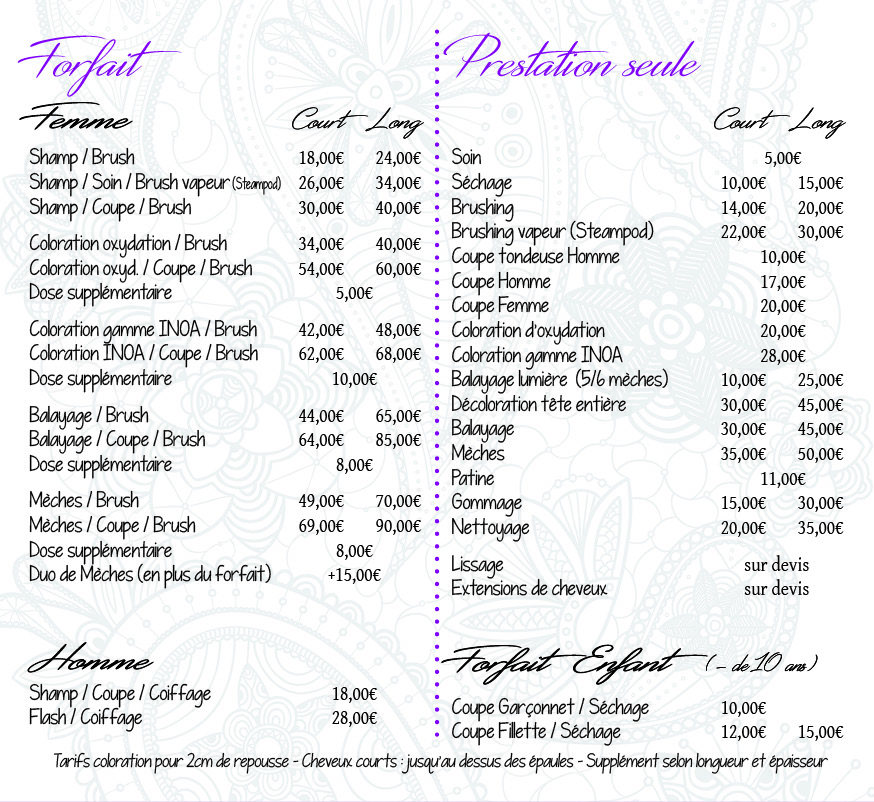 Forfait
Femme Court Long
Shamp / Brush 18,00€ 24,00€
Shamp / Soin / Brush vapeur (Steampod) 26,00€ 34,00€
Shamp / Coupe / Brush 30,00€ 40,00€
Coloration oxydation / Brush 34,00€ 40,00€
Coloration oxyd. / Coupe / Brush 54,00€ 60,00€
Dose supplémentaire 5,00€
Coloration gamme INOA / Brush 42,00€ 48,00€
Coloration INOA / Coupe / Brush 62,00€ 68,00€
Dose supplémentaire 10,00€
Balayage / Brush 44,00€ 65,00€
Balayage / Coupe / Brush 64,00€ 85,00€
Dose supplémentaire 8,00€
Mèches / Brush 49,00€ 70,00€
Mèches / Coupe / Brush 69,00€ 90,00€
Dose supplémentaire 8,00€
Duo de Mèches (en plus du forfait) +15,00€
Homme
Shamp / Coupe / Coiffage 18,00€
Flash / Coiffage 28,00€
Prestation seule
Court Long
Soin 5,00€
Séchage 10,00€ 15,00€
Brushing 14,00€ 20,00€
Brushing vapeur (Steampod) 22,00€ 30,00€
Coupe tondeuse Homme 10,00€
Coupe Homme 17,00€
Coupe Femme 20,00€
Coloration d'oxydation 20,00€
Coloration gamme INOA 28,00€
Balayage lumière (5/6 mèches) 10,00€ 25,00€
Décoloration tête entière 30,00€ 45,00€
Balayage 30,00€ 45,00€
Mèches 35,00€ 50,00€
Patine 11,00€
Gommage 15,00€ 30,00€
Nettoyage 20,00€ 35,00€
Lissage sur devis
Extensions de cheveux sur devis
Forfait Enfant (- de 10 ans)
Coupe Garçonnet / Séchage 10,00€
Coupe Fillette / Séchage 12,00€ 15,00€
Tarifs coloration pour 2cm de repousse - Cheveux courts : jusqu'au dessus des épaules - Supplément selon longueur et épaisseur